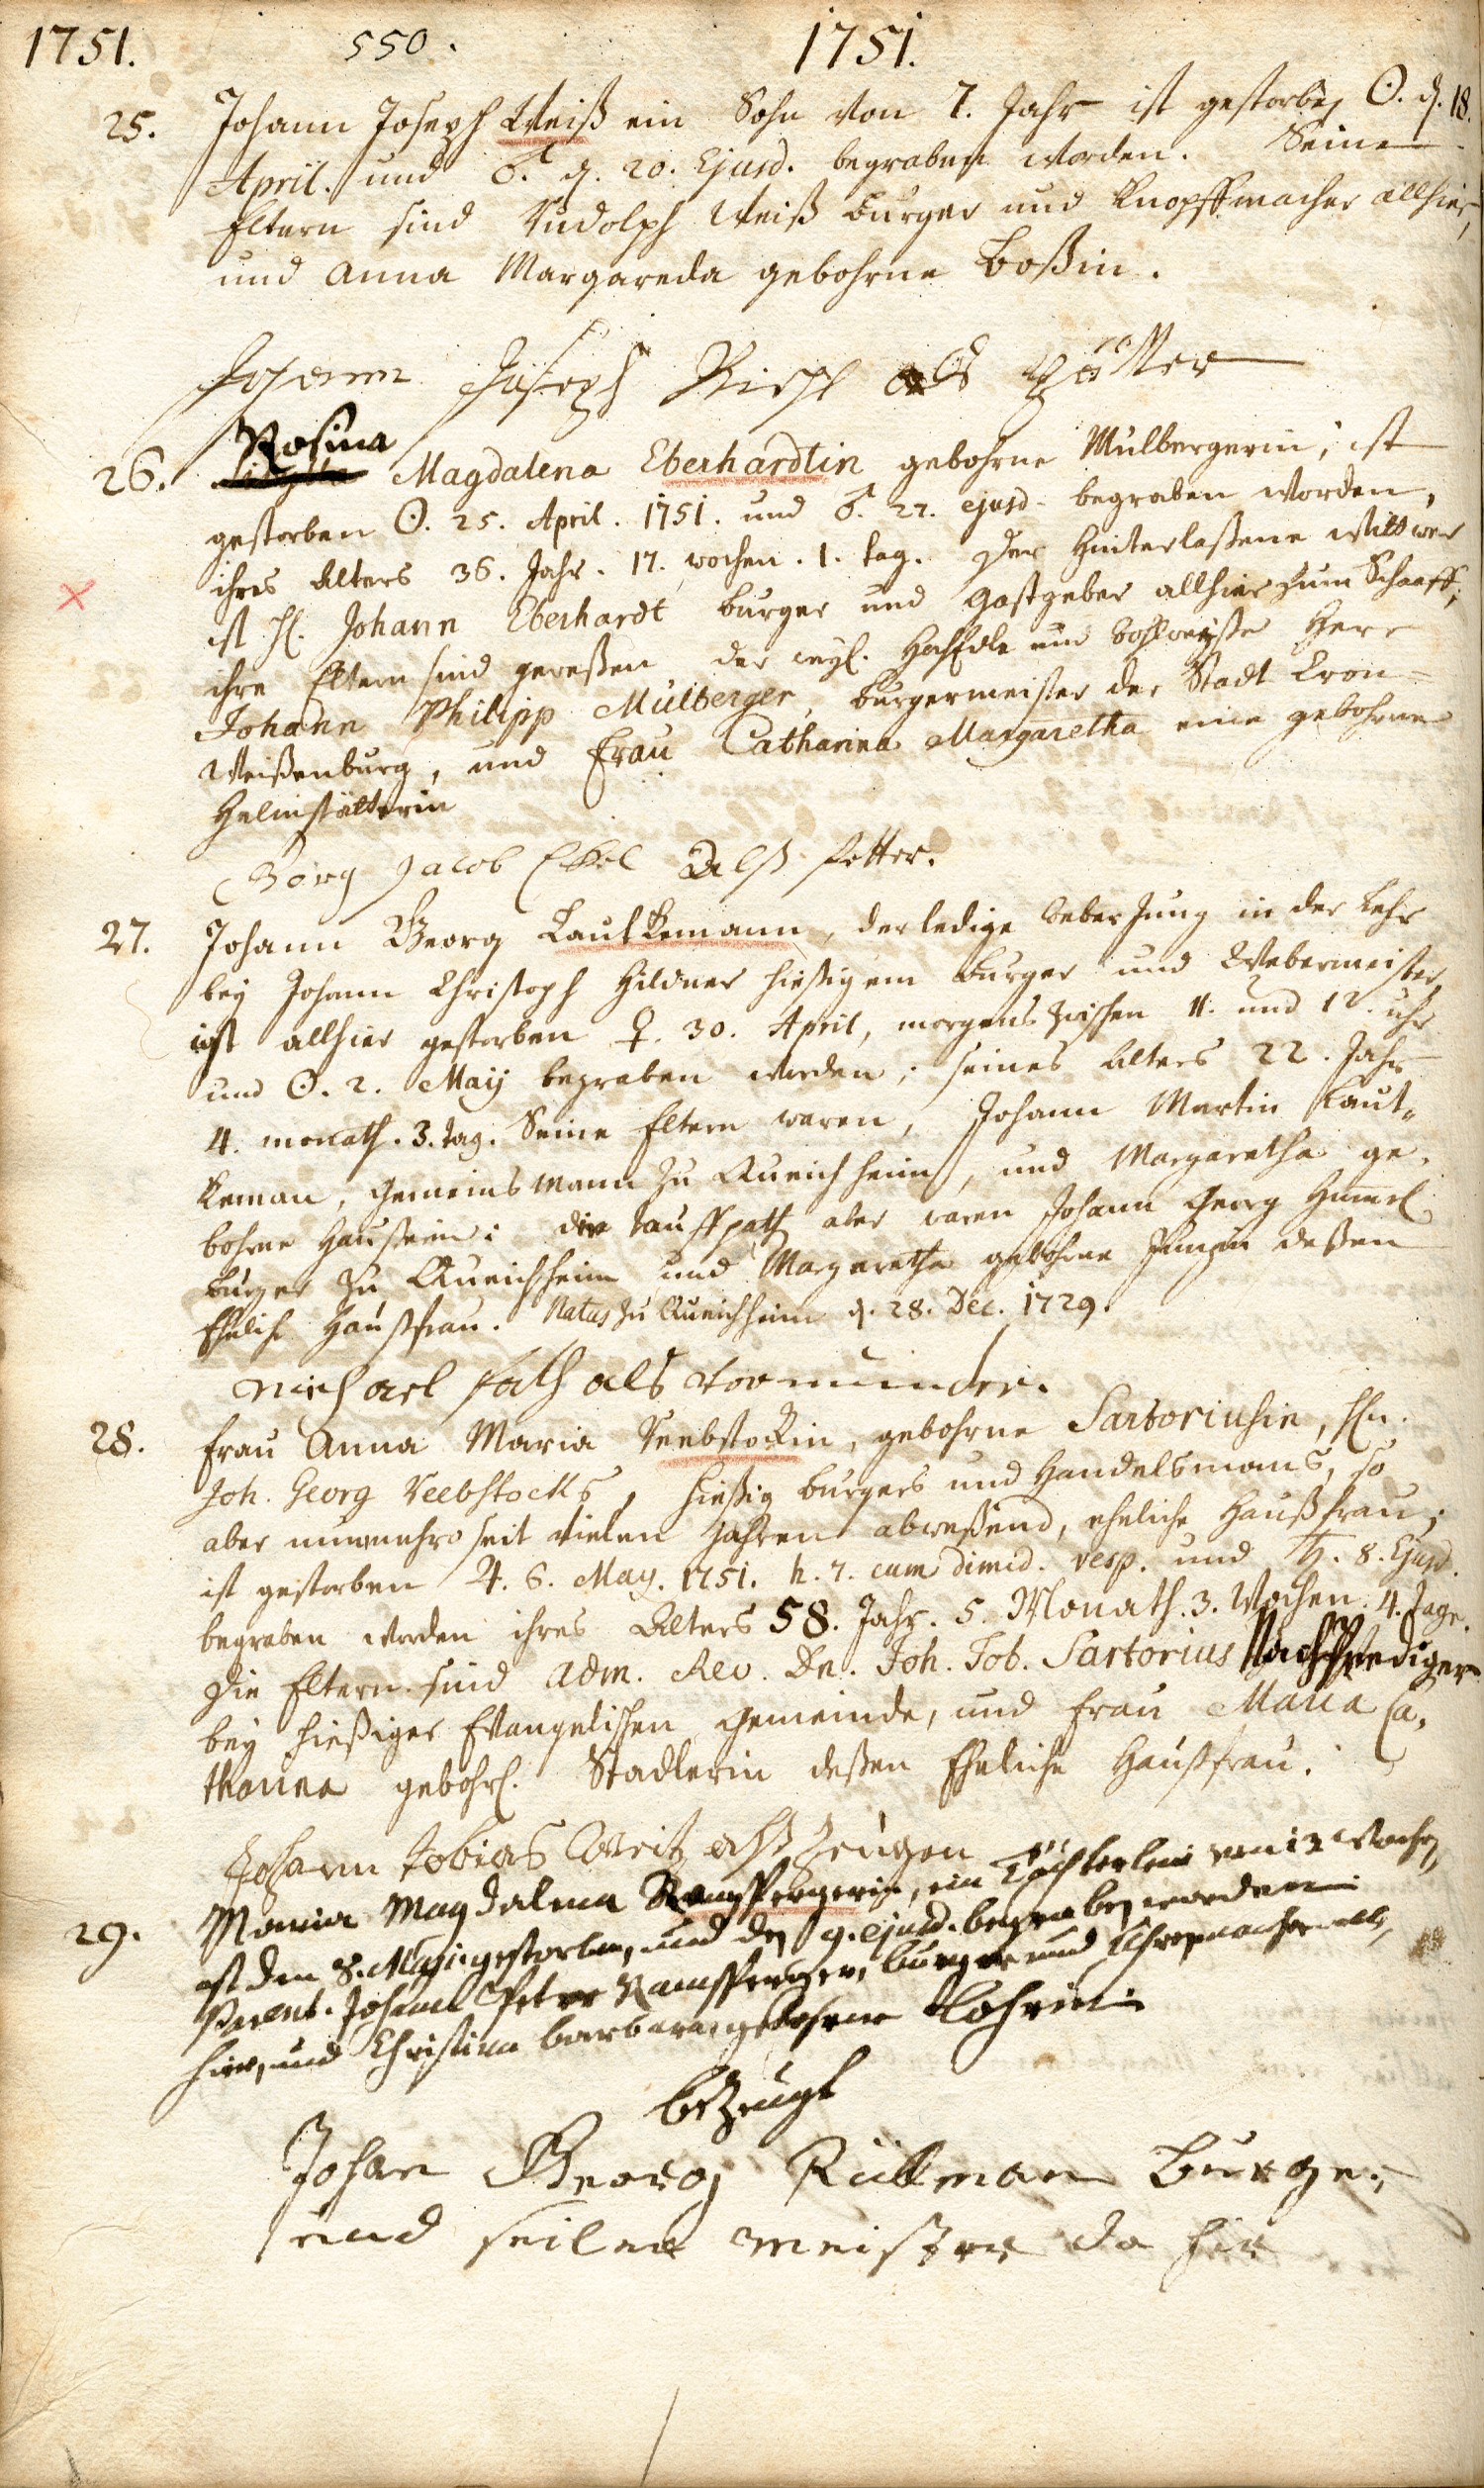 1751. 550. 1751.
25. Johann Joseph Weiß ein Sohn von 7. Jahr ist gestorben ☉. d. 18.
April. und ♂. d. 20. Ejusd. begraben worden. Seine
Eltern sind Rudolph Weiß Burger und Knopffmacher allhier,
und Anna Margareda gebohrne Boßin.
Johann Joseph als
Rosina
26. Magdalena Eberhardtin gebohrne Mülbergerin, ist
gestorben ☉. 25. April. 1751. und ♂. 27. ejusd. begraben worden,
ihres Alters 36. Jahr. 17. wochen. 1. tag. Der Hinterlaßene Wittwer
ist H. Johann Eberhardt burger und Gastgeber allhier zum Schaaff,
ihre Eltern sind geweßen der weyl. und Herr
Johann Philipp Mülberger, burgermeister der Stadt Cron-
Weißenburg, und Frau Catharina Margaretha eine gebohrne
Helmstätterin
Görg Jacob Ekel Alß Petter.
27. Johann Georg Lautkemann, der ledige Weber Jung in der Lehr
bey Johann Christoph Hildner hießigem Burger und Webermeister,
ist allhier gestorben ♀. 30. April, morgens zwischen 11. und 12. uhr
und ☉. 2. Maÿ begraben worden, seines Alters 22. Jahr
4. monath. 3. tag. Seine Eltern waren, Johann Martin Laut-
keman, Gemeinsmann zu Queichheim, und Margaretha ge-
bohrne Haußin: die Tauffpath aber waren Johann Georg
Burger zu Queichheim und Margaretha gebohrne deßen
Ehelich Haußfrau. Natus zu Queichheim d. 28. Dec. 1729.
Michael Fath als vormunder.
28. Frau Anna Maria Reebstockin, gebohrne Sartoriusin, Hn.
Joh. Georg Reebstocks, hießig Burgers und Handelsmans, so
aber nunmehro seit vielen Jahren abweßend, eheliche Haußfrau,
ist gestorben ♃. 6. May. 1751. h. 7. cum dimid. vesp. und ♄. 8. Ejusd.
begraben worden ihres Alters 58. Jahr. 5. Monath. 3. Wochen. 4. Tage.
Die Eltern sind adm. Rev. Dn. Joh. Tob. Sartorius Nachprediger
bey hießiger Evangelischen Gemeinde, und Frau Maria Ca-
tharina gebohrl. Stadlerin deßen Eheliche Haußfrau.
Johann Tobias Weitz alß Zeugen
29. Maria Magdalena Ramspergerin, ein Töchterlein von 12 Wochen,
ist den 8. Maji. gestorben, und den 9. ejusd. begraben worden.
Parent. Johann Peter Ramsperger, burger und Uhrenmacher all-
hier, und Christina barbara, gebohrne Lohrin.
bezeugt
Johan Georg Rüllman Burger
und seiler meister da hie